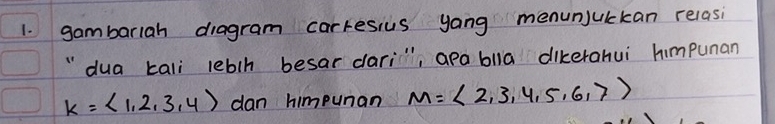 1. gambarlah diagram cartesius yang menunjukkan relasi
"dua kali lebih besar dari", apa bila diketahui himpunan
K = <1,2,3,4> dan himpunan M = <2,3,4,5,6,7>